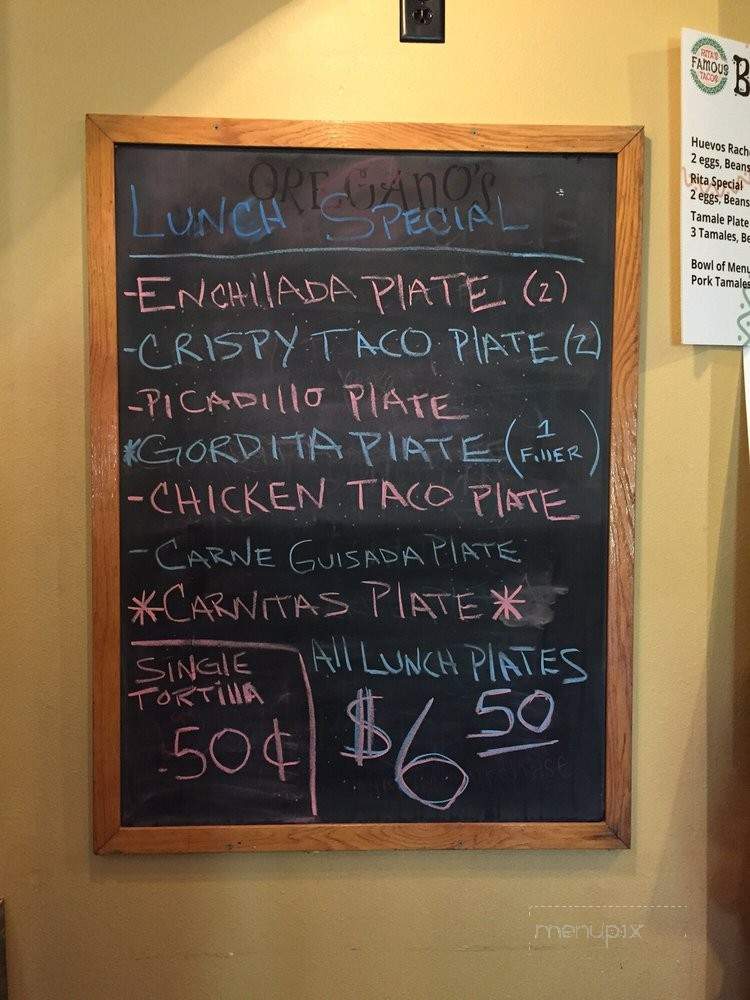 OREGANO'S
LUNCH SPECIAL
-ENCHIlADA PlATE (2)
-CRISPY TACO PlATE (2)
-PICADIllO PlATE
*GORDITA PlATE (1 FillER)
-CHICKEN TACO PlATE
-CARNE GUISADA PlATE
*CARNITAS PlATE*
SINGlE
TORTIllA
.50¢
All LUNCH PlATES
$6 50
RITA'S
FAMOUS
TACOS
B
Huevos Ranch
2 eggs, Beans
Rita Special
2 eggs, Beans
Tamale Plate
3 Tamales, Be
Bowl of Menu
Pork Tamales
menupix